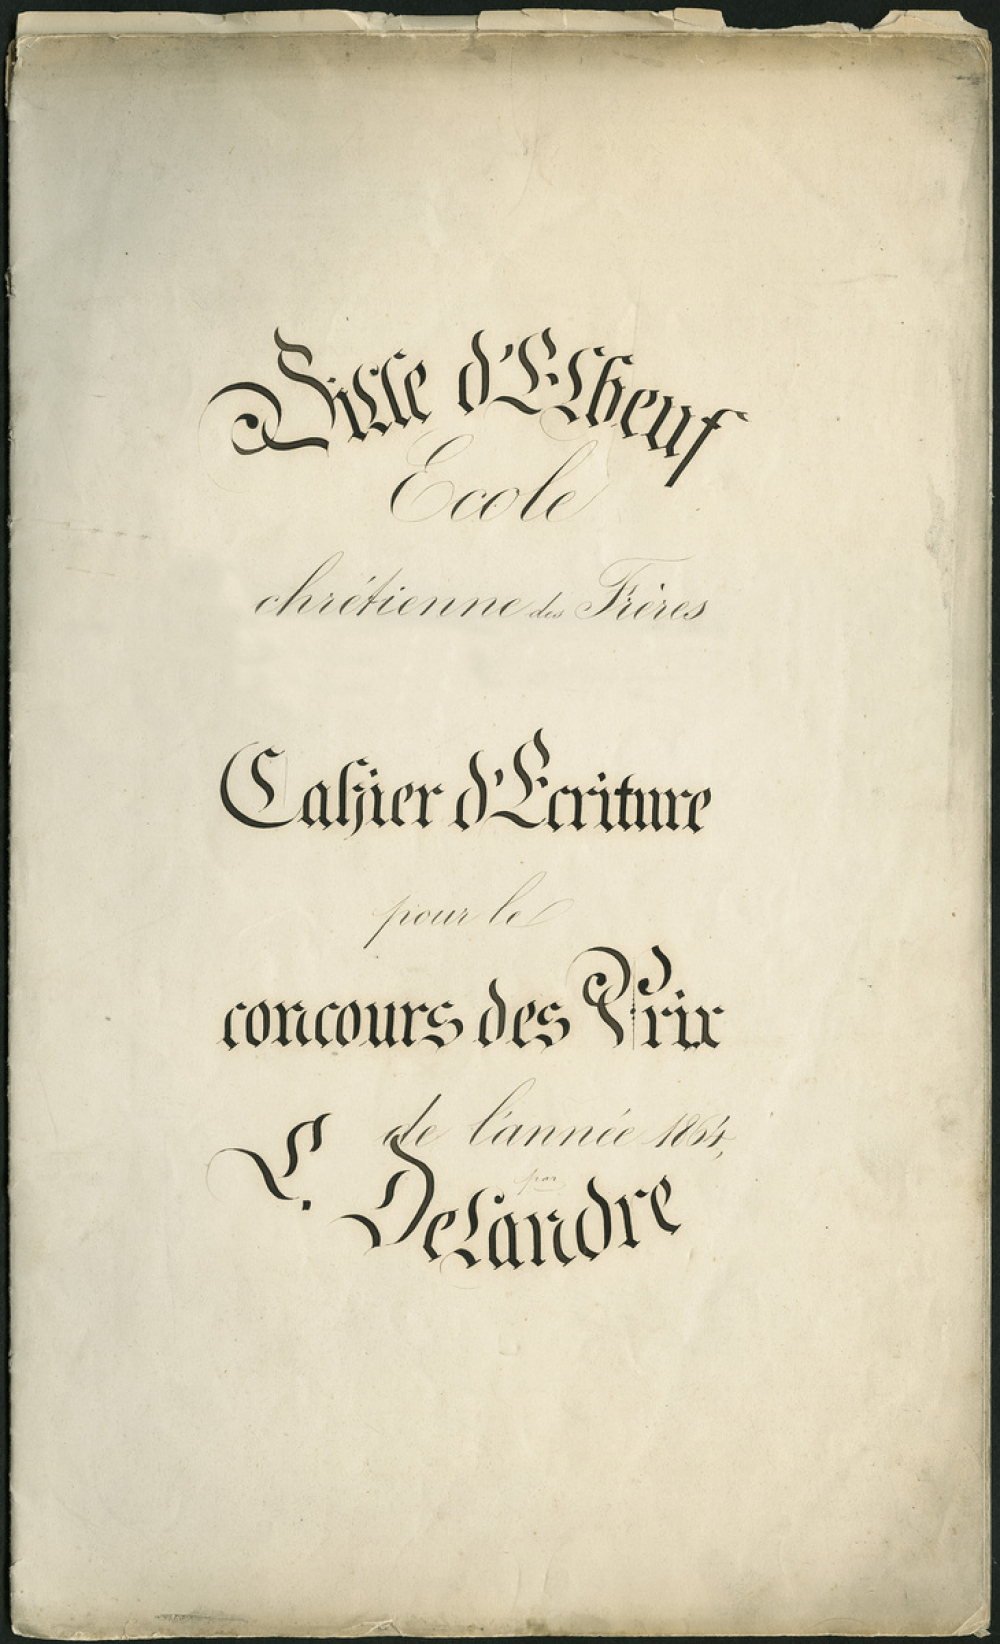 Ville d'Elbeuf
Ecole
chrétienne des Frères
Cahier d'Ecriture
pour le
concours des Prix
de l'année 1864,
par
L. Delandre